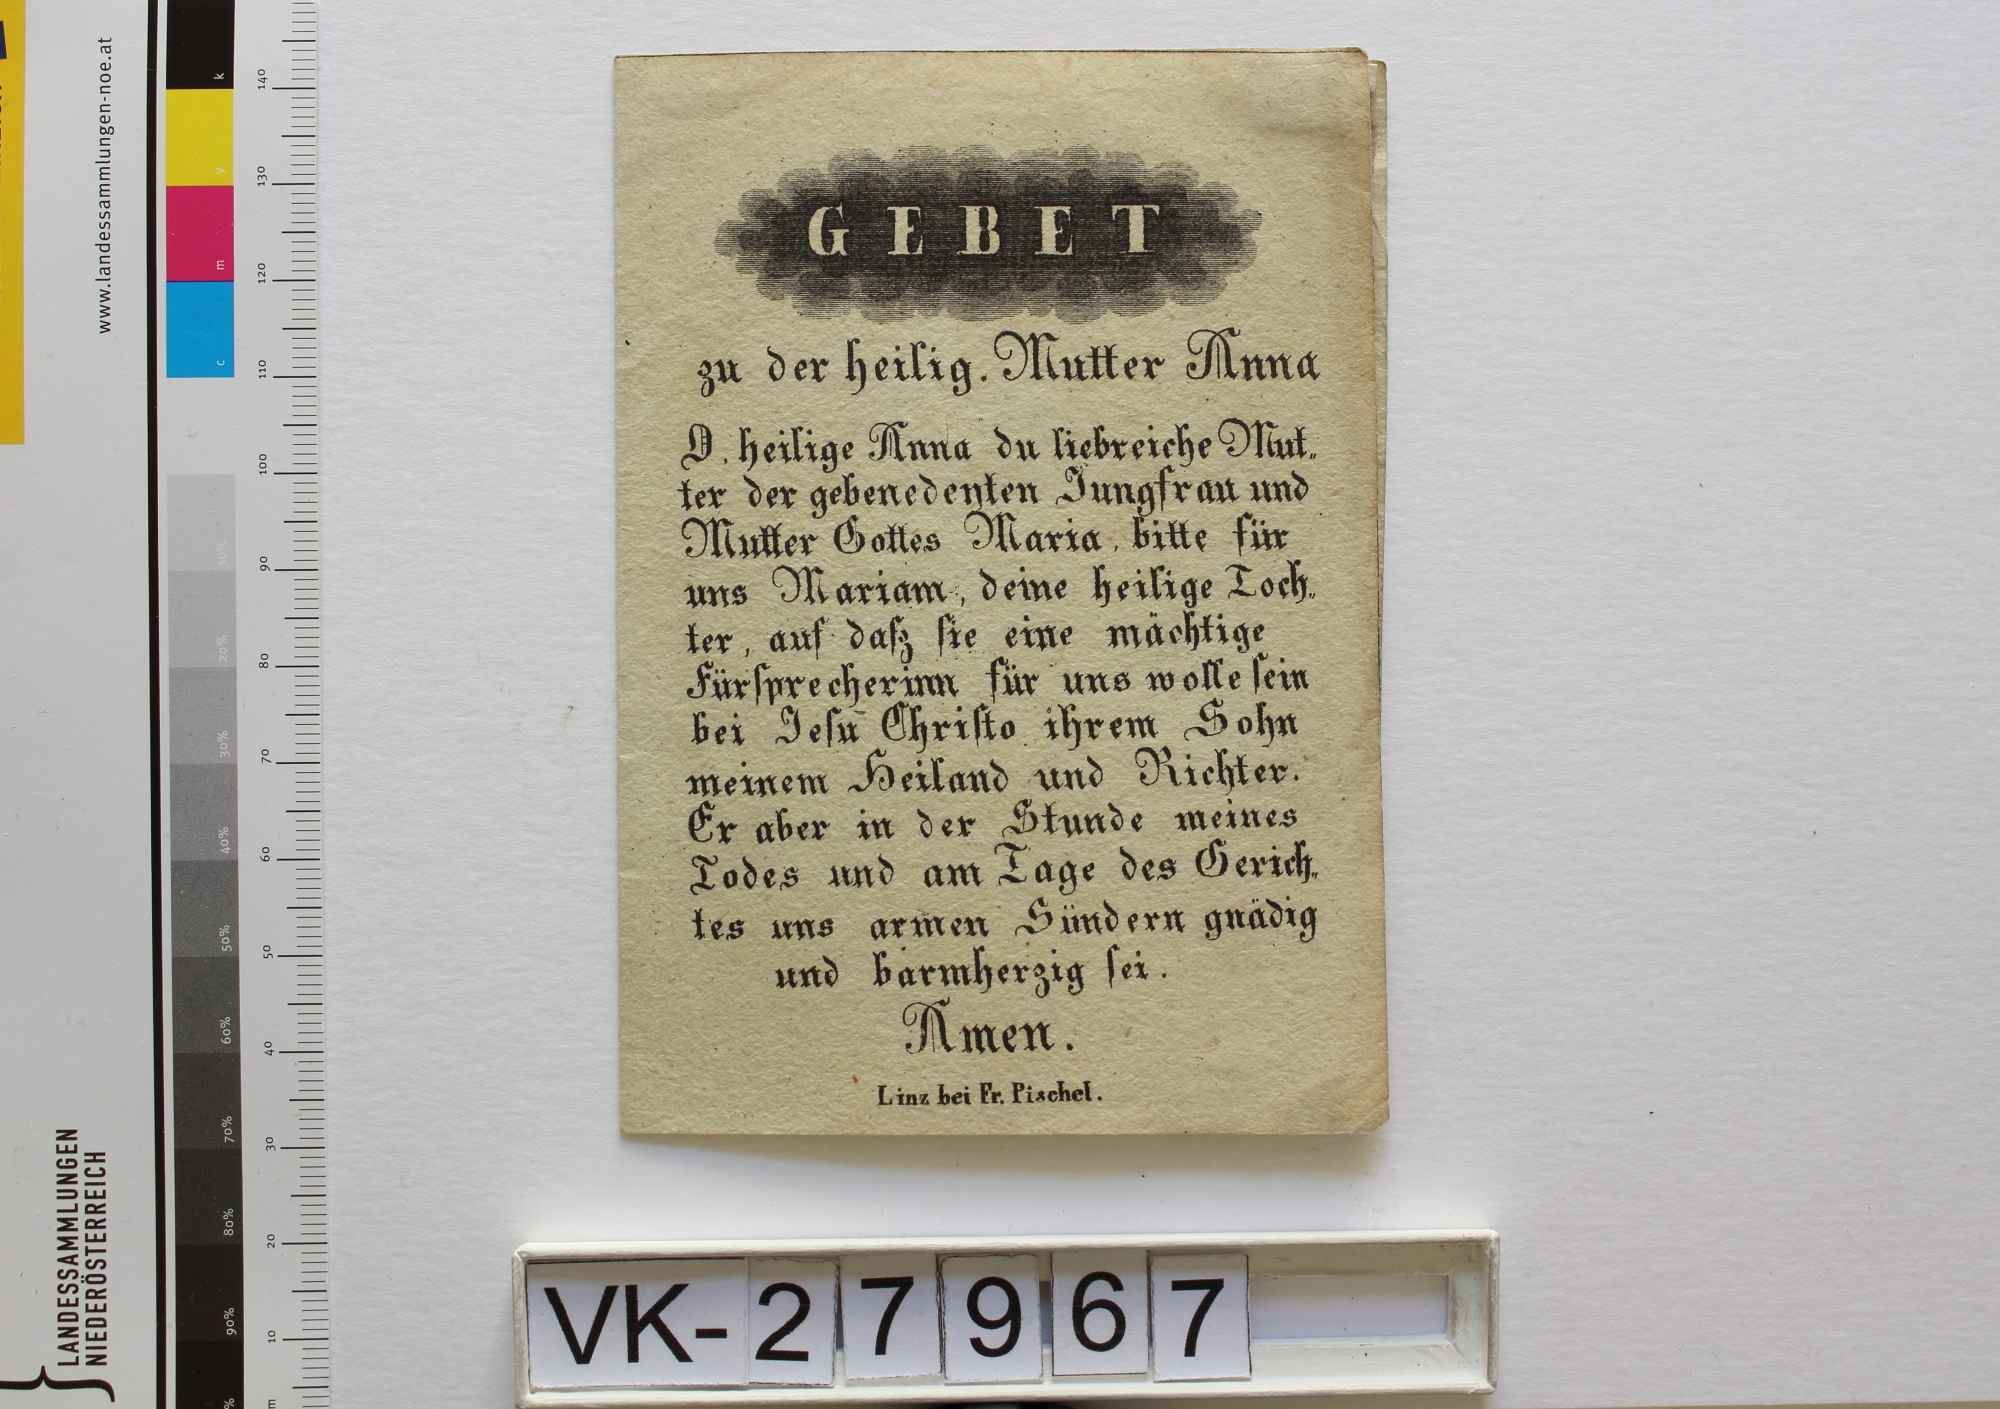 GEBET
zu der heilig. Mutter Anna
O. heilige Anna du liebreiche Mut„
ter der gebenedeyten Jungfrau und
Mutter Gottes Maria, bitte für
uns Mariam, deine heilige Toch„
ter, auf daß sie eine mächtige
Fürsprecherinn für uns wolle sein
bei Jesu Christo ihrem Sohn
meinem Heiland und Richter.
Er aber in der Stunde meines
Todes und am Tage des Gerich„
tes uns armen Sündern gnädig
und barmherzig sei.
Amen.
Linz bei Fr. Pischel.
VK-27967
www.landessammlungen-noe.at
LANDESSAMMLUNGEN
NIEDERÖSTERREICH
k
y
m
c
10%
20%
30%
40%
50%
60%
70%
80%
90%
140
130
120
110
100
90
80
70
60
50
40
30
20
10